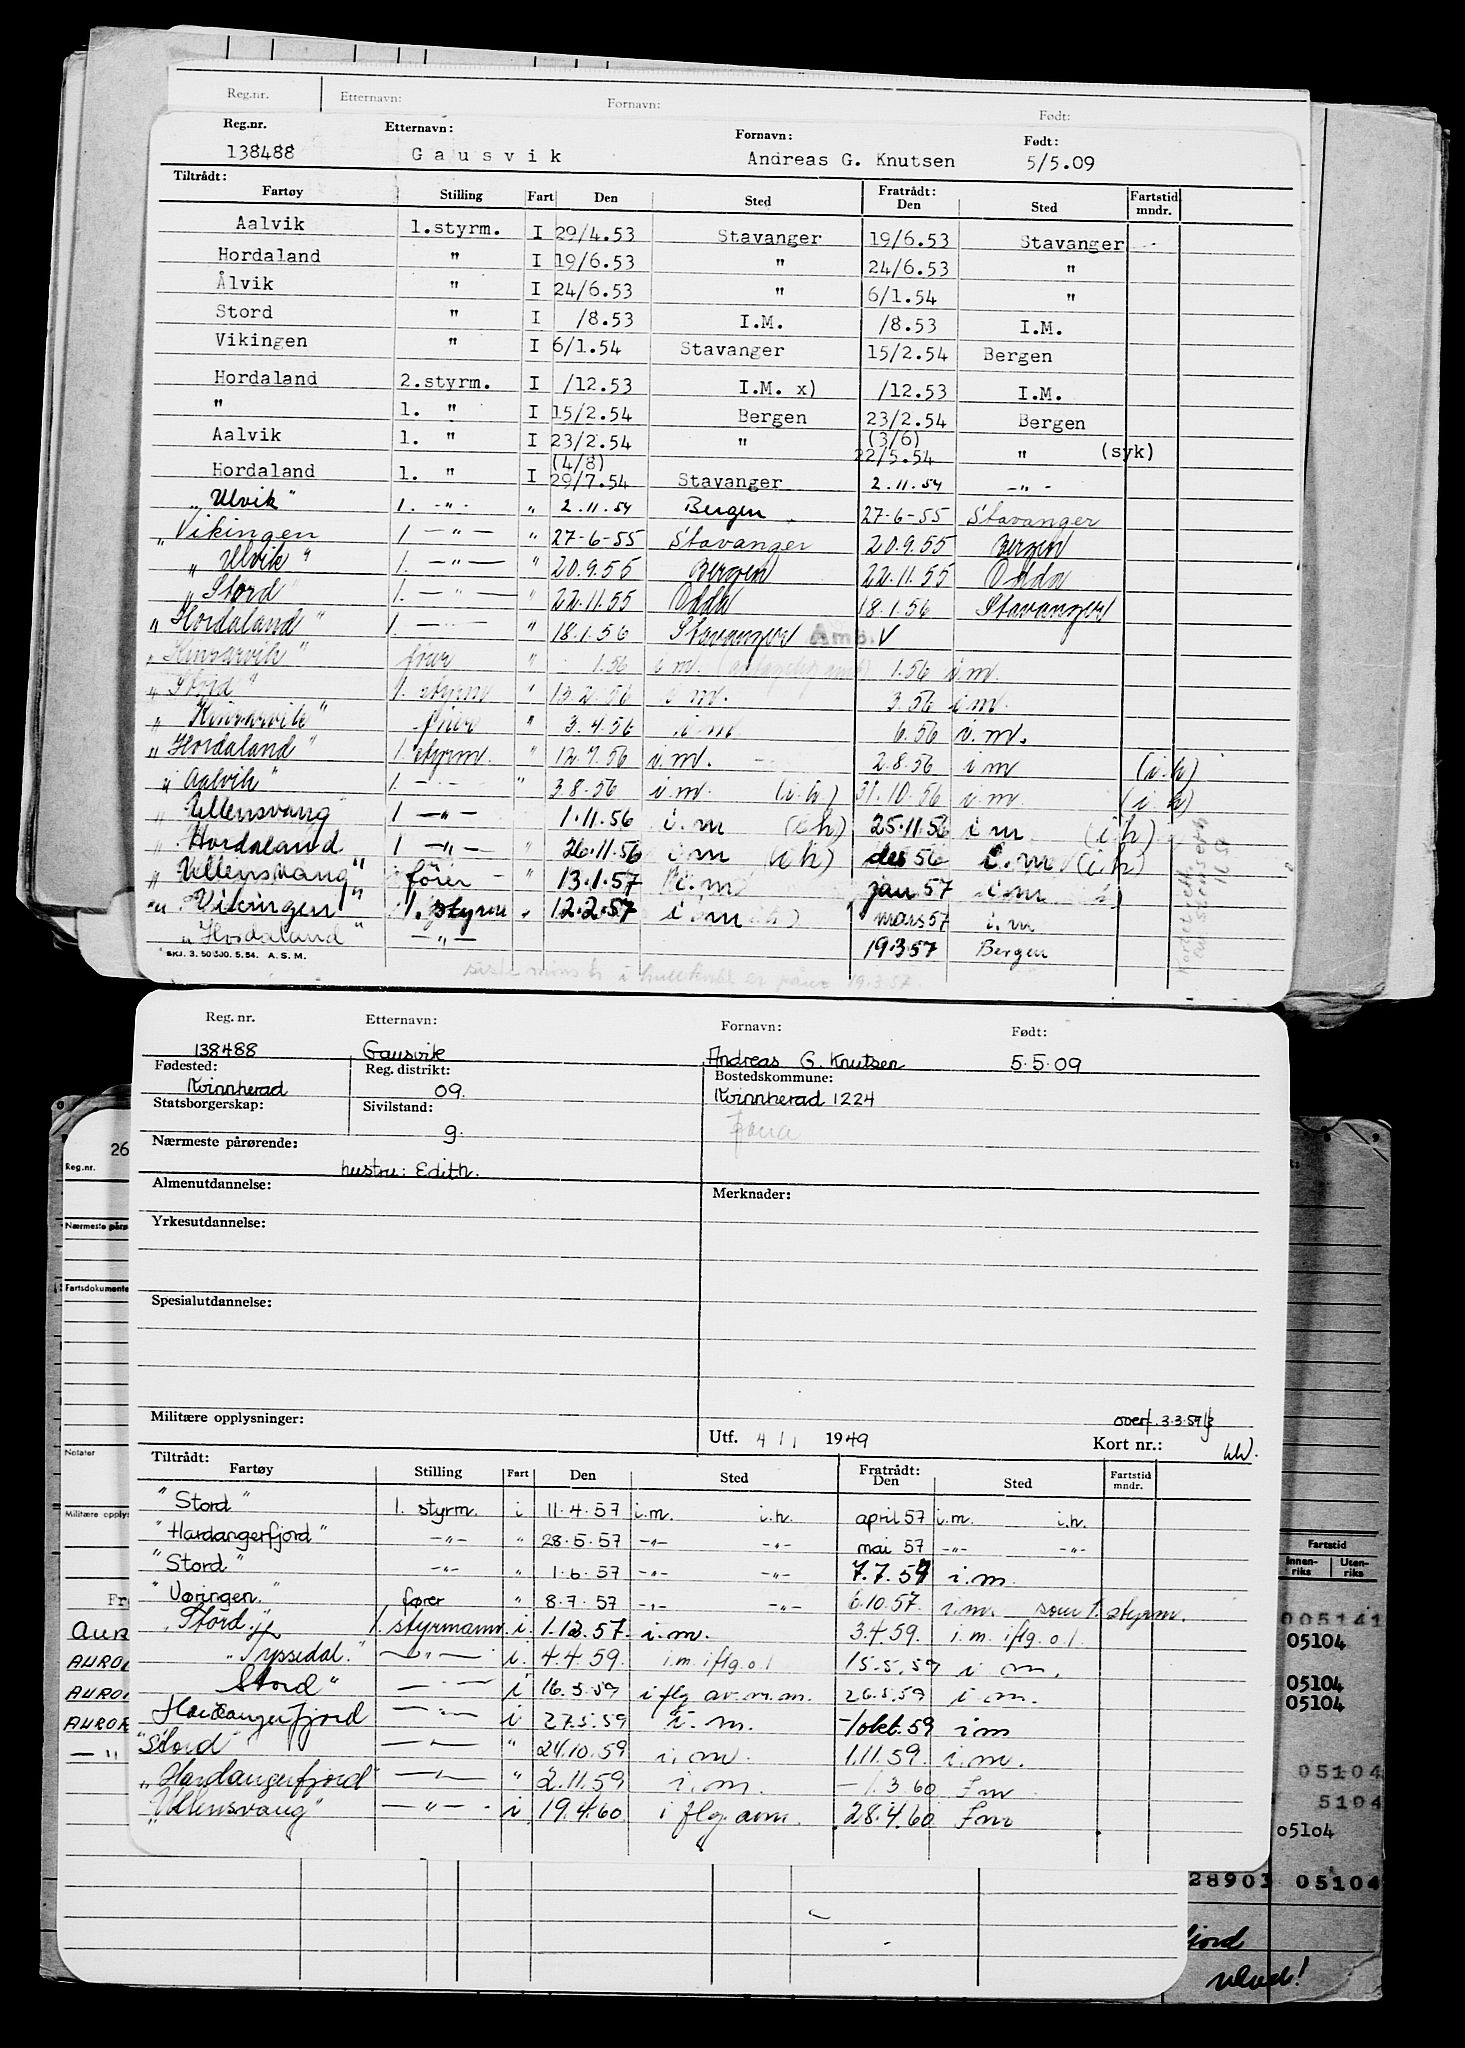 Reg.nr. Etternavn: Fornavn: Født:
Reg.nr. Etternavn: Fornavn: Født:
138488 Gausvik Andreas G. Knutsen 5/5.09
Tiltrådt: Fratrådt: Fartstid
Fartøy Stilling Fart Den Sted Den Sted mndr.
Aalvik 1.styrm. I 29/4.53 Stavanger 19/6.53 Stavanger
Hordaland " I 19/6.53 " 24/6.53 "
Ålvik " I 24/6.53 " 6/1.54 "
Stord " I /8.53 I.M. /8.53 I.M.
Vikingen " I 6/1.54 Stavanger 15/2.54 Bergen
Hordaland 2.styrm. I /12.53 I.M. x) /12.53 I.M.
" 1. " I 15/2.54 Bergen 23/2.54 Bergen
Aalvik 1. " I 23/2.54 " (3/6) 22/5.54 " (syk)
Hordaland 1. " I (4/8) 29/7.54 Stavanger 2.11.54 -"-
"Ulvik" 1. -"- " 2.11.54 Bergen 27-6-55 Stavanger
"Vikingen 1 -"- " 27-6-55 Stavanger 20.9.55 Bergen
"Ulvik" 1. -"- " 20.9.55 Bergen 22.11.55 Odda
"Stord" 1. -"- " 22.11.55 Odda 18.1.56 Stavanger
"Hordaland" 1. -"- " 18.1.56 Stavanger Amb. V
"Kinsarvik" fører " 1.56 i m. 1.56 i.m.
"Stord" 1. styrm " 13.2.56 i m. 3.56 i m.
"Kinsarvik" fører " 3.4.56 i m 6.56 i.m.
"Hordaland" 1. styrm. " 12.7.56 i.m. 2.8.56 i m (i.h)
"Aalvik" 1 -"- " 3.8.56 i.m. (i.h) 31.10.56 i m. (i.h)
"Ullensvang 1 -"- 1.11.56 i.m (i h) 25.11.56 i m (i h)
"Hordaland 1 -"- 26.11.56 i m (i h) des 56 i.m (i h)
"Ullensvang" fører - " 13.1.57 i.m jan 57 i m
"Vikingen" 1. styrm " 12.2.57 i m mars 57 i.m
"Hordaland" -"- 19.3.57 Bergen
SKJ. 3. 50 500. 5.54. A. S. M.
19.3.57.
Reg. nr. Etternavn: Fornavn: Født:
138488 Gausvik Andreas G. Knutsen 5.5.09
Fødested: Reg. distrikt: Bostedskommune:
Kvinnherad 09. Kvinnherad 1224
Statsborgerskap: Sivilstand: Fana
g.
Nærmeste pårørende:
hustru: Edith.
Almenutdannelse: Merknader:
Yrkesutdannelse:
Spesialutdannelse:
Militære opplysninger: overf. 3.3.59
Utf. 4/1 1949 Kort nr.:
Tiltrådt: Fratrådt: Fartstid
Fartøy Stilling Fart Den Sted Den Sted mndr.
"Stord" 1. styrm. i 11.4.57 i.m. i.h. april 57 i.m. i.h.
"Hardangerfjord" -"- " 28.5.57 -"- -"- mai 57 -"- -"-
"Stord" -"- " 1.6.57 -"- -"- 7.7.57 i.m.
"Vøringen" fører " 8.7.57 -"- -"- 6.10.57. i.m. som 1. styrm.
"Stord" 1. styrmann. i. 1.12.57. i.m. 3.4.59. i.m. iflg. o.l.
"Tyssedal." -"- i. 4.4.59. i.m. iflg. o.l 15.5.59 i m.
Stord" -"- i 16.5.59 i flg av.m.m. 26.5.59 i m.
Hardangerfjord -"- i 27.5.59 i. m. -/okt. 59 i m
"Stord" -"- " 24.10.59 i. m. 1.11.59. i.m.
"Hardangerfjord" -"- " 2.11.59 i.m. -/.3.60 I m
"Ullensvang" -"- i 19.4.60. i flg. avm. 28.4.60 I m
26
Reg.nr.
Nærmeste pårø
Fartsdokumente
Notater
Militære opplys
AURO
AURO
AUROR
Fartstid
Innen-riks Uten-riks
005141
05104
05104
05104
05104
5104
05104
28903 05104
fjord